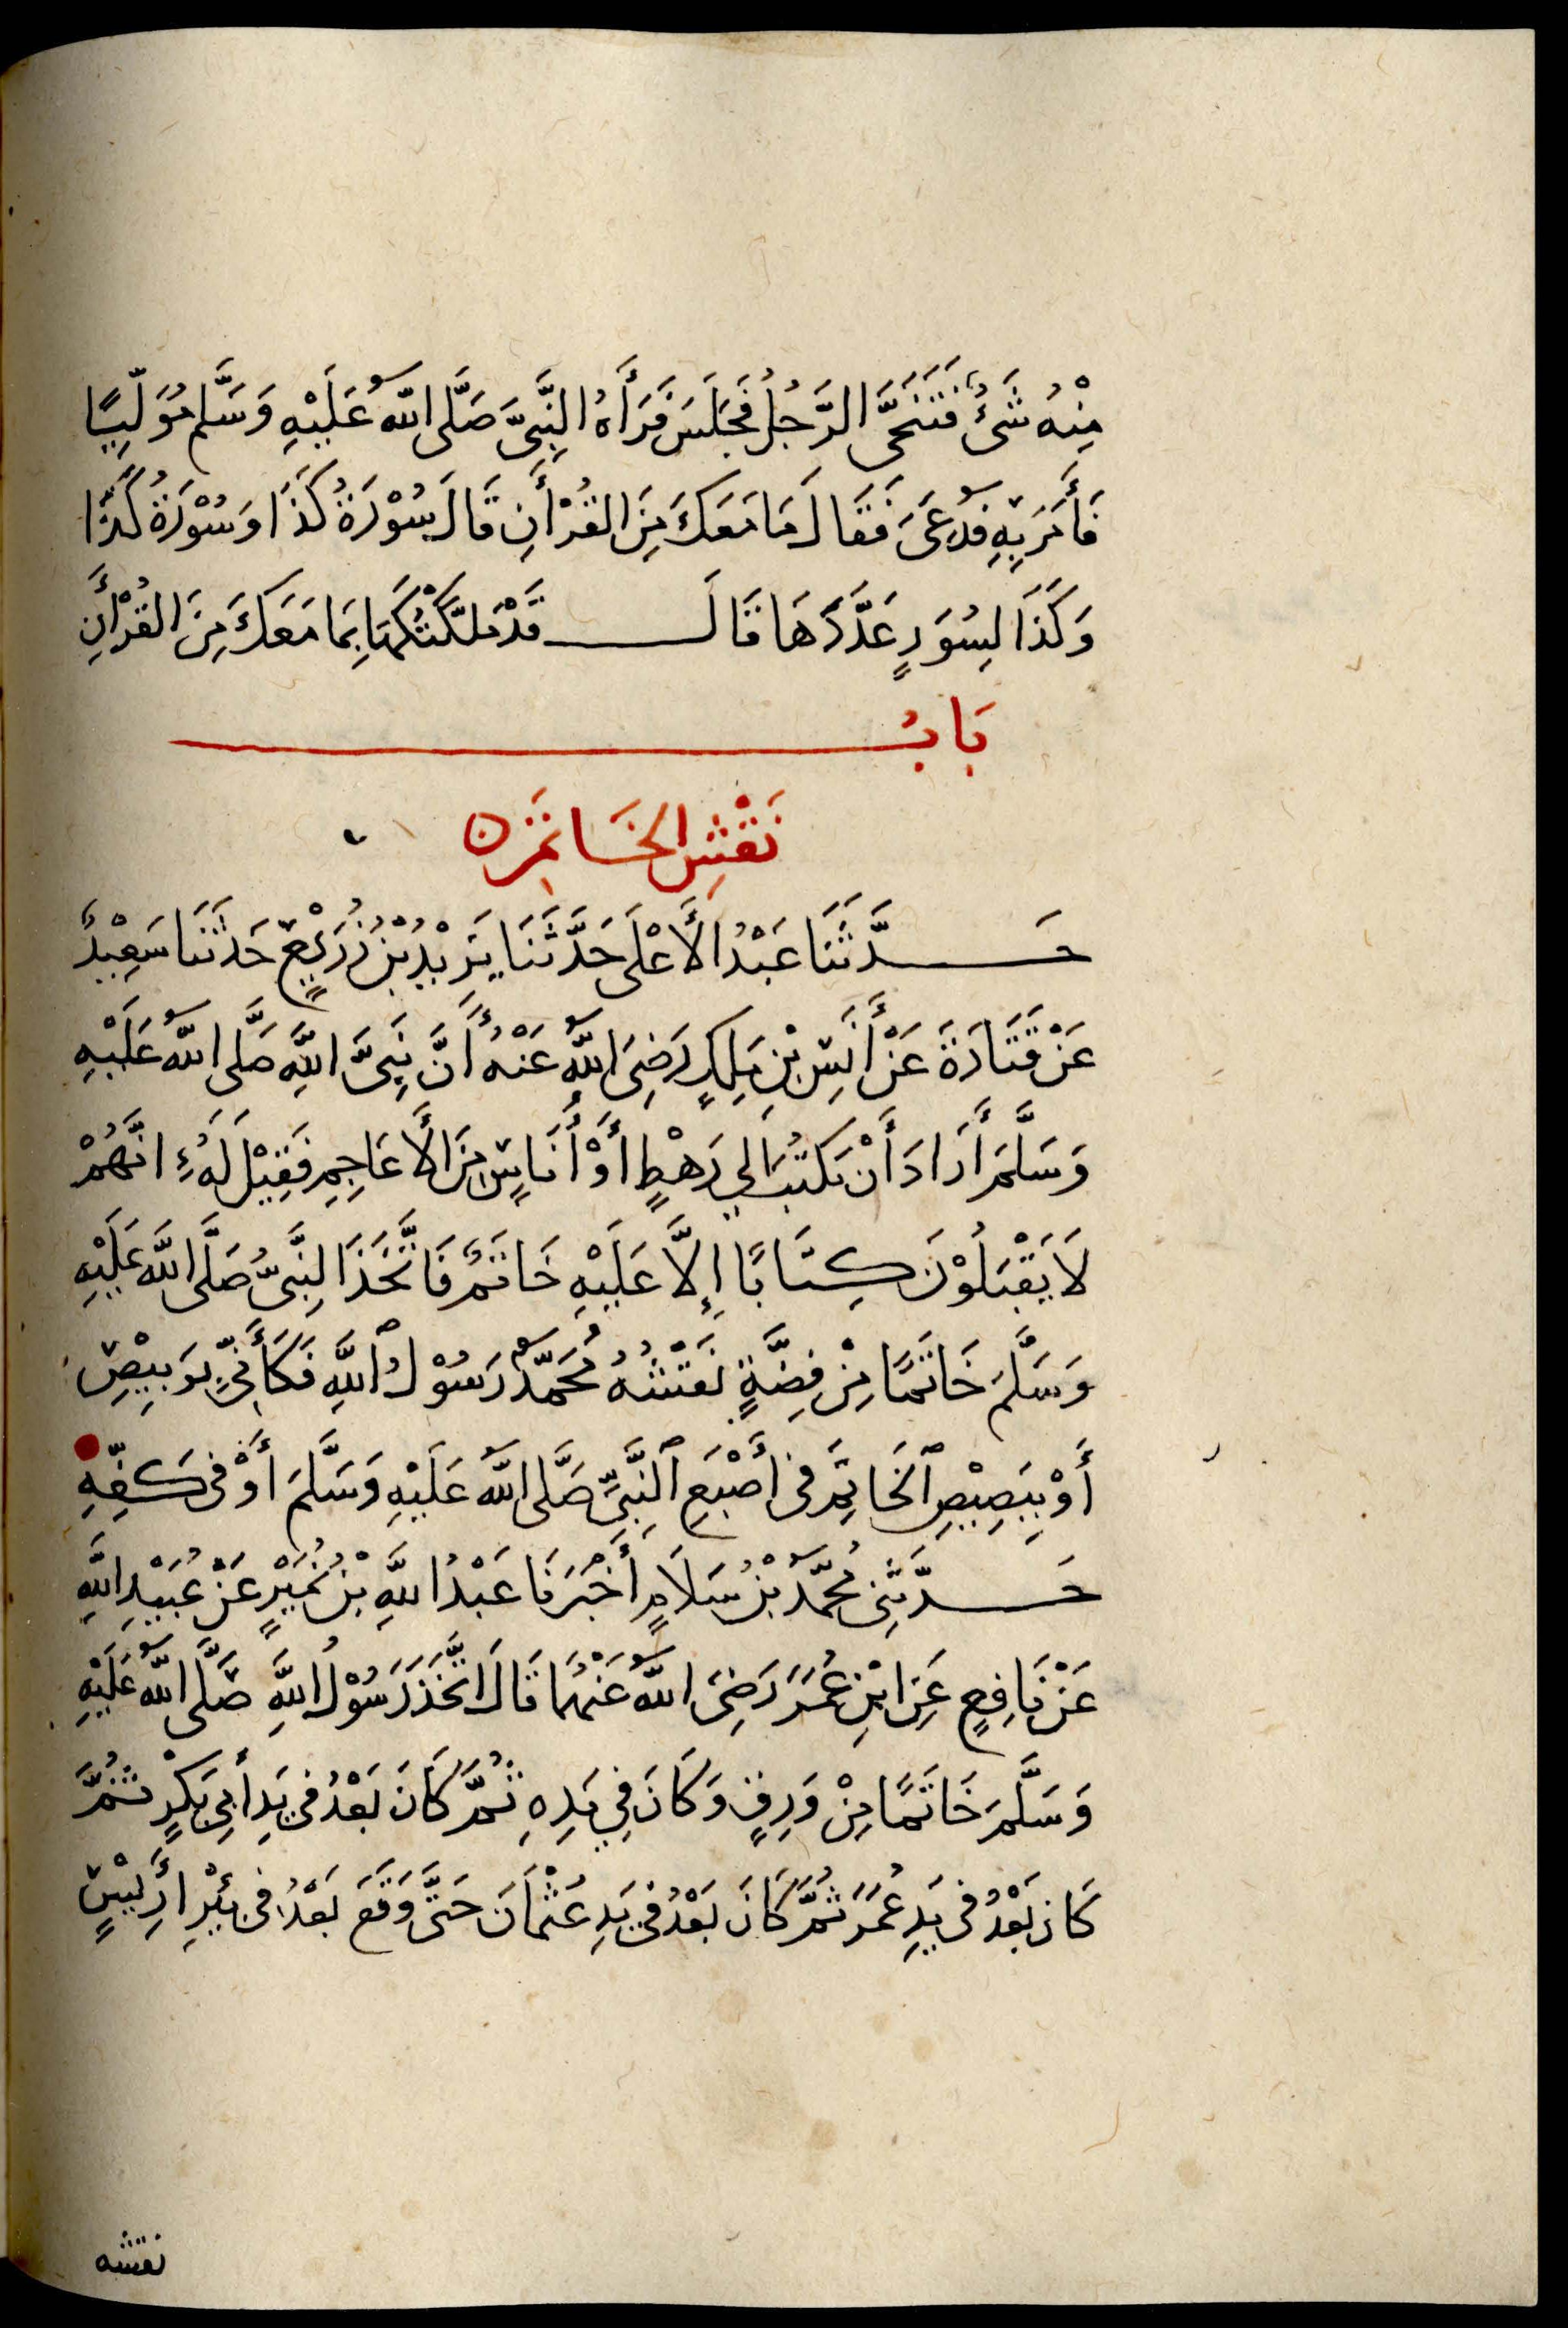 مِنْهُ شَيْءٌ فَتَنَحَّى الرَّجُلُ فَجَلَسَ فَرَأَهُ النَّبِيُّ صَلَّى اللّٰهُ عَلَيْهِ وَسَلَّمَ مُوَلِّيًا
فَأَمَرَ بِهِ فَدُعِىَ فَقَالَ مَا مَعَكَ مِنَ القُرْأَنِ قَالَ سُوْرَةُ كَذَا وَسُوْرَةُ كَذَا
وَكَذَا لِسُوَرٍ عَدَّدَهَا قَالَ قَدْ مَلَّكْتُكَهَا بِمَا مَعَكَ مِنَ القُرْأَنِ
بَابُ
نَقْشِ الخَاتَمِ
حَدَّثَنَا عَبْدُ الأَعْلَى حَدَّثَنَا يَزِيْدُ بْنُ زُرَيْعٍ حَدثَنَا سَعِيْدٌ
عَنْ قَتَادَةَ عَنْ أَنَسِ بْنِ مٰلِكٍ رَضِىَ اللّٰهُ عَنْهُ أَنَّ نَبِىَّ اللّٰهِ صَلَّى اللّٰهُ عَلَيْهِ
وَسَلَّمَ أَرَادَ أَنْ يَكْتُبَ إلي رَهْطٍ أَوْ أُنَاسٍ مِنَ الأَعَاجِمِ فَقِيْلَ لَهُ إِنَّهُمْ
لَا يَقْبَلُوْنَ كِتَابًا إِلَّا عَلَيْهِ خَاتَمٌ فَاتَّخَذَ النَّبِىُّ صَلَّى اللّٰهُ عَلَيْهِ
وَسَلَّمَ خَاتَمًا مِنْ فِضَّةٍ نَقْشُهُ مُحَمَّدٌ رَسُوْلُ اللّٰهِ فَكَأَنِّى بِوَبِيْصِ
أَوْ بِبَصِيْصِ الخَاتِمَ فى أصْبَعِ النَّبِىِّ صَلَّى اللّٰهُ عَلَيْهِ وَسَلَّمَ أَوْ فى كَفِّهِ
حَدَّثَنِى مُحَمَّدُ بْنُ سَلَامٍ أَخْبَرَنَا عَبْدُ اللّٰهِ بْنُ نُمَيْرٍ عَنْ عُبَيْدِ اللّٰهِ
عَنْ نَافِعٍ عَنِ ابْنِ عُمَرَ رَضِىَ اللّٰهُ عَنْهُمَا قَالَ اتَّخَذَ رَسُوْلُ اللّٰهِ صَلَّى اللّٰهُ عَلَيْهِ
وَسَلَّمَ خَاتَمًا مِنْ وَرِقٍ وَكَانَ فِي يَدِهِ ثُمَّ كَانَ بَعْدُ فى يَدِ أَبِي بَكْرٍ ثُمَّ
كَانَ بَعْدُ فى يَدِ عُمَرَ ثُمَّ كَانَ بَعْدُ فى يَدِ عُثْمَانَ حَتَّى وَقَعَ بَعْدُ فى بِئْرِ أَرِيْسٍ
نقشه